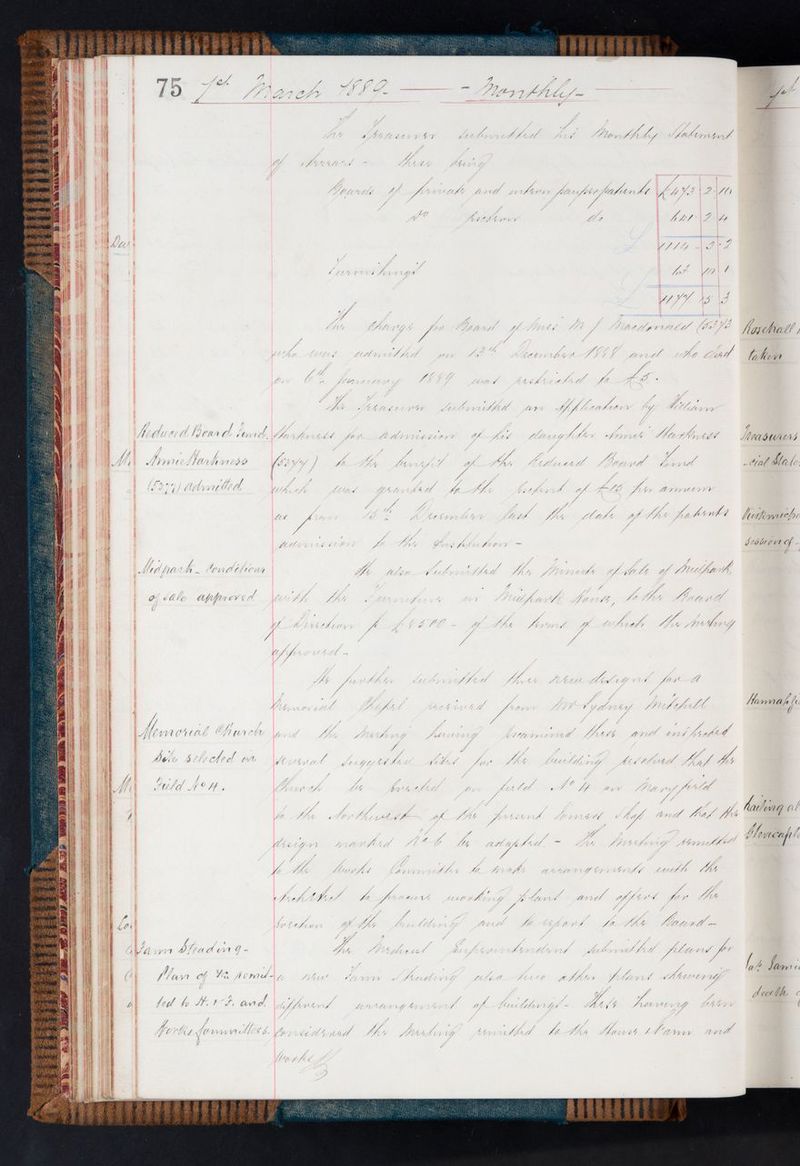 75 1st March 1889. — Monthly —
The Treasurer submitted his Monthly Statement
of Arrears — these being
Boards of private and intron pauper patients £473 2 10
Do do 641 2 4
£ 1114 - 5 - 2
Furnishings 63 10 1
£ 1177 15 3
The charge for Board of Miss M J Macdonald (5373
who was admitted on 13th December 1888 and who died
on 6th January 1889 was restricted to £5.
The Treasurer submitted an Application by William
Reduced Board Fund.
Annie Harkness
(5377) admitted
Harkness for admission of his daughter Annie Harkness
(5377) to the benefit of the Reduced Board Fund
which was granted to the extent of £12 per annum
as from 15th December last the date of the patients
admission to the Institution —
Midpark - Conditions
of sale approved
He also submitted the Minute of Sale of Midpark
with the Furniture in Midpark House, to the Board
of Direction for £8500 - of the terms of which the meeting
approved —
He further submitted three new designs for a
Memorial Chapel received from Mr Sydney Mitchell
Memorial Church
Site selected on
Field No 4.
and the Meeting having examined these and inspected
several suggested sites for the building resolved that the
Church be erected on field No 4 on Maryfield
to the Northwest of the present Joiners Shop and that the
design marked No 6 be adopted - The Meeting remitted
to the Works Committee to make arrangements with the
Architect to procure working plans and offers for the
erection of the building and to report to the Board —
Farm Steading -
Plan of &c remit-
ted to H. & F. and
Works Committees.
The Medical Superintendent submitted plans for
a new Farm Steading also two other plans shewing
different arrangement of buildings - these having been
considered the Meeting remitted to the House & Farm and
Works
Rosehall
taken
Treasurers
-cial State
Kirkmicha
Session of
Hannah
Railing at
Glencapl
death